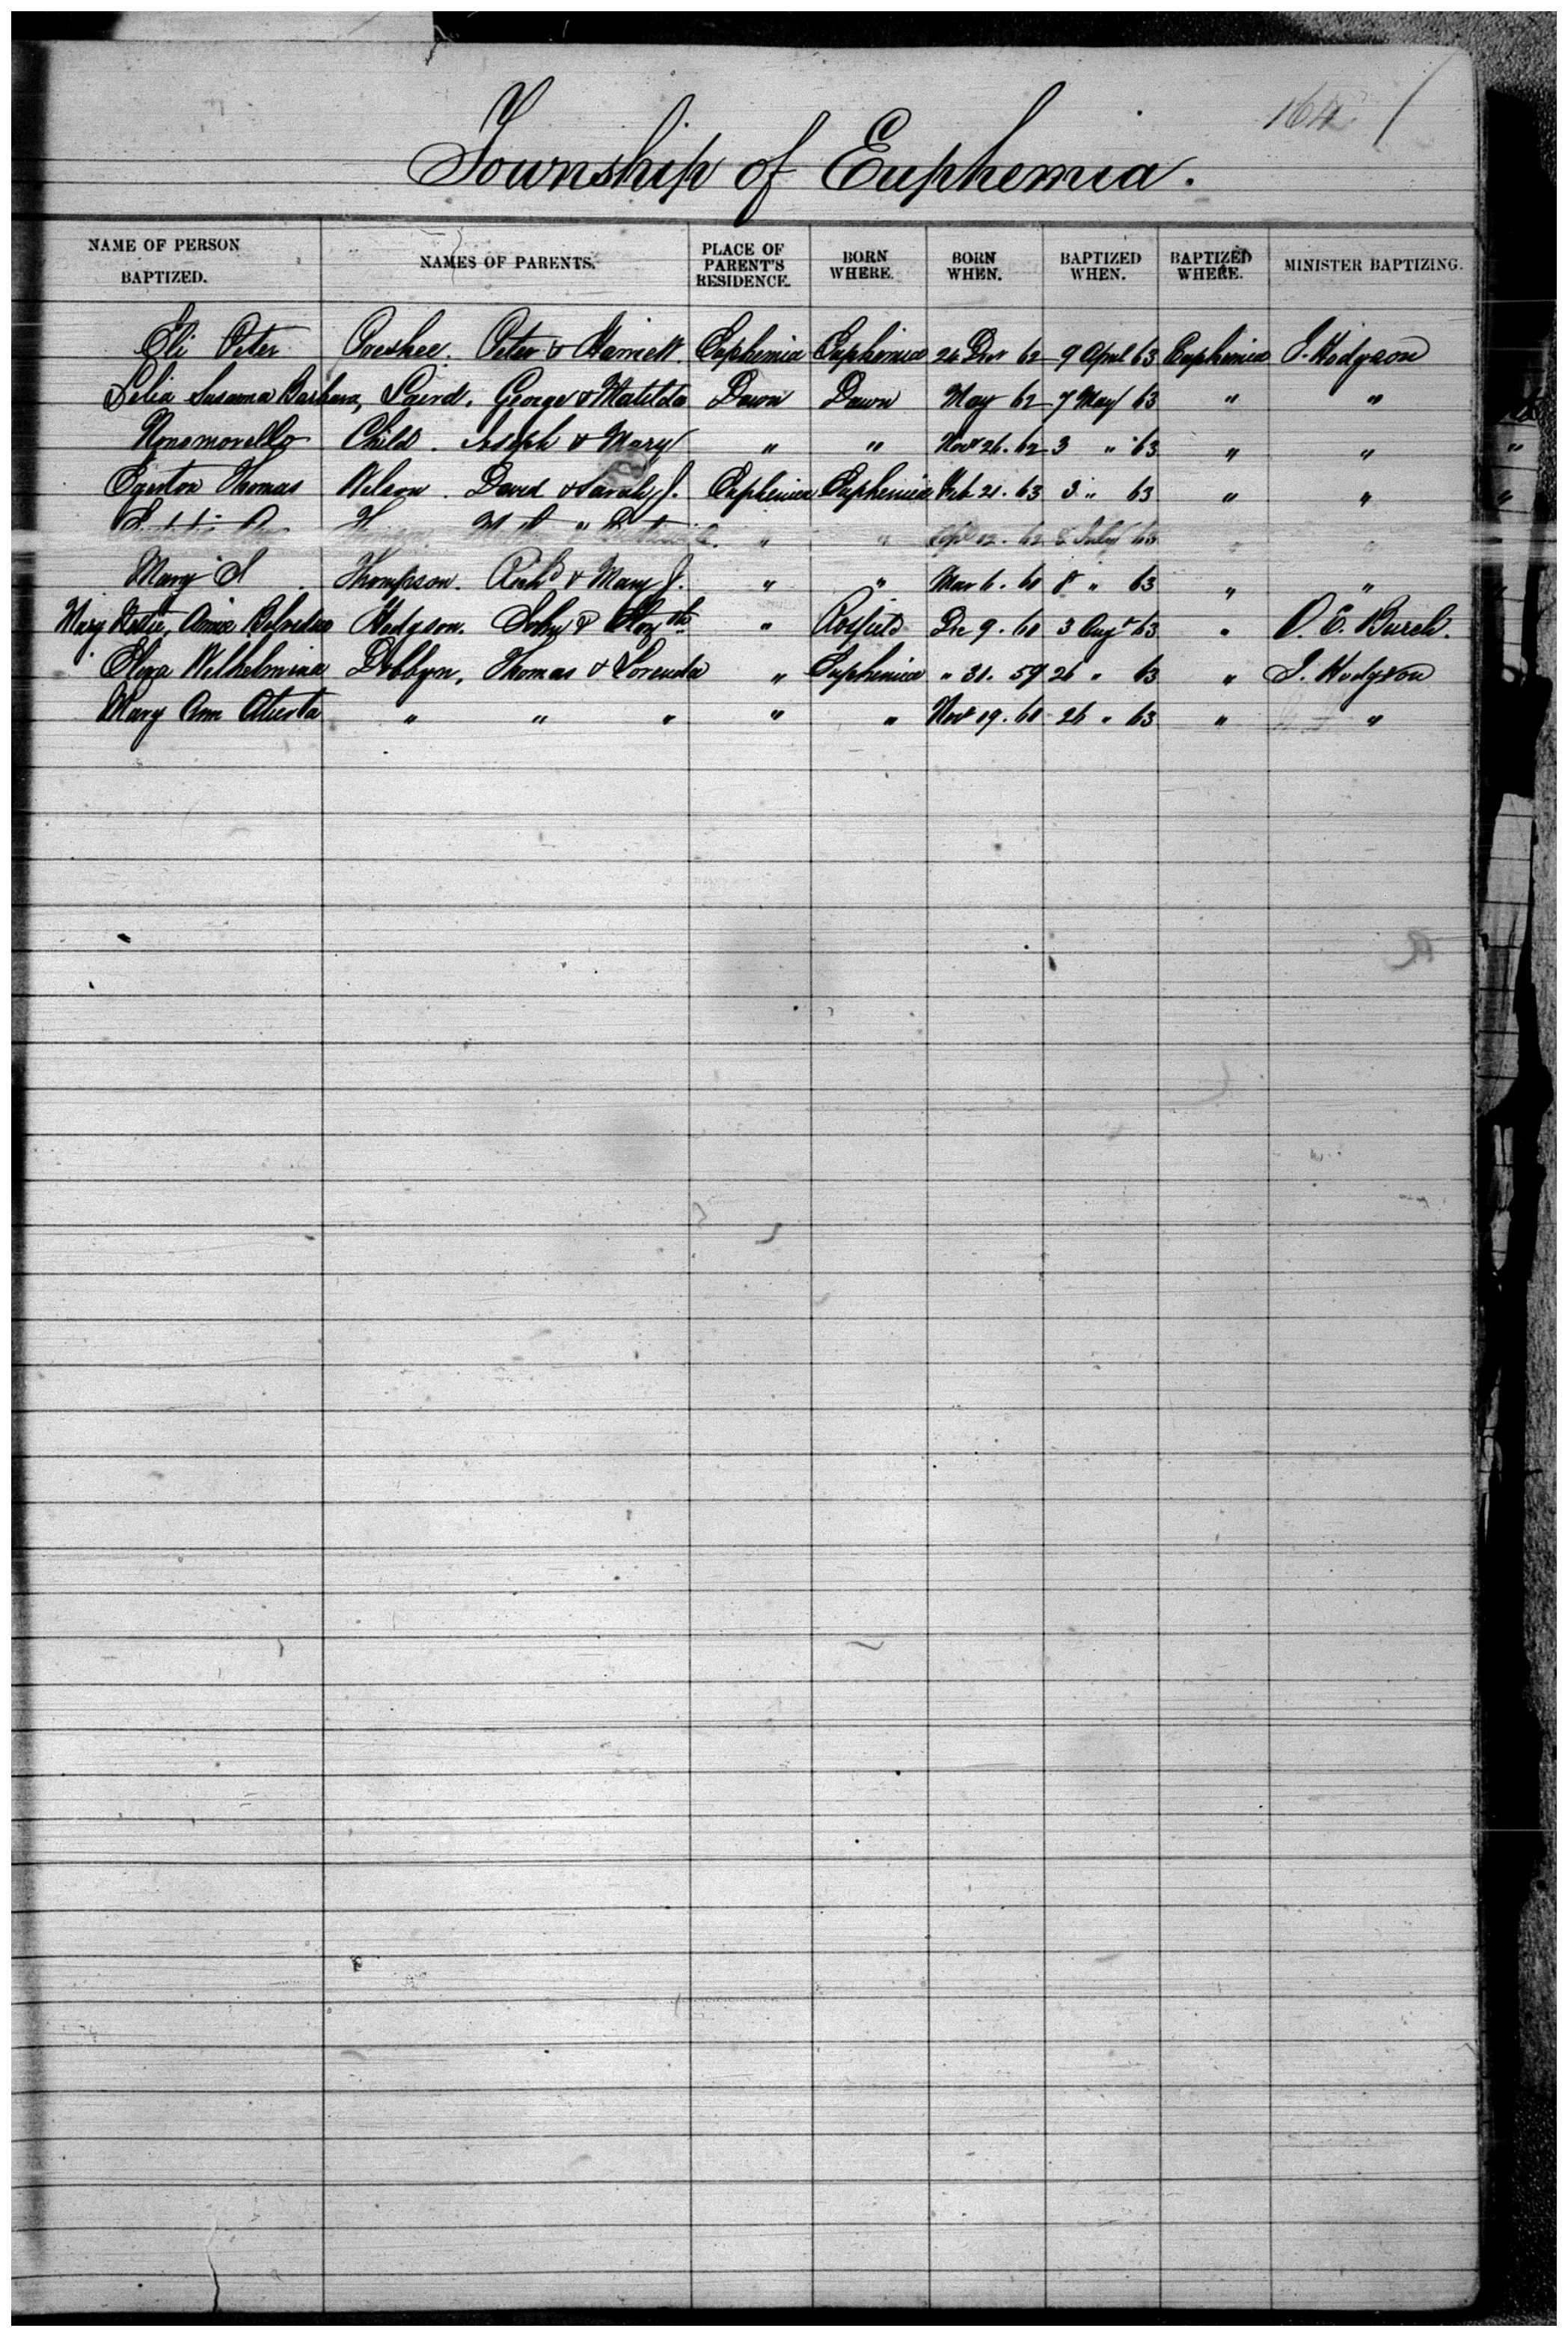 164
Township of Euphemia.
NAME OF PERSON BAPTIZED. NAMES OF PARENTS. PLACE OF PARENT'S RESIDENCE. BORN WHERE. BORN WHEN. BAPTIZED WHEN. BAPTIZED WHERE. MINISTER BAPTIZING.
Eli Peter Peter & Harriett. Euphemia Euphemia 26 Decr 62 9 April 63 Euphemia J. Hodgson
Susanna Barbara, Laird. George & Matilda Dawn Dawn May 62 7 May 63 " "
Child. Joseph & Mary " " Novr 26. 62 3 " 63 " "
Egerton Thomas Wilson. David & Sarah J. Euphemia Euphemia Feb 21. 63 3 " 63 " "
" " Sept 12. 62 8 July 63 " "
Mary S Thompson. Richd & Mary J. " " Mar 6. 60 8 " 63 " "
Mary Hodgson. John & Elizth " Dec 9. 60 3 Augt 63 " O. E. Burch.
Eliza Wilhelmina Dobbyn. Thomas & Lorenda " Euphemia " 31. 59 26 " 63 " J. Hodgson
Mary Ann " " " " " Novr 19. 60 26 " 63 " "